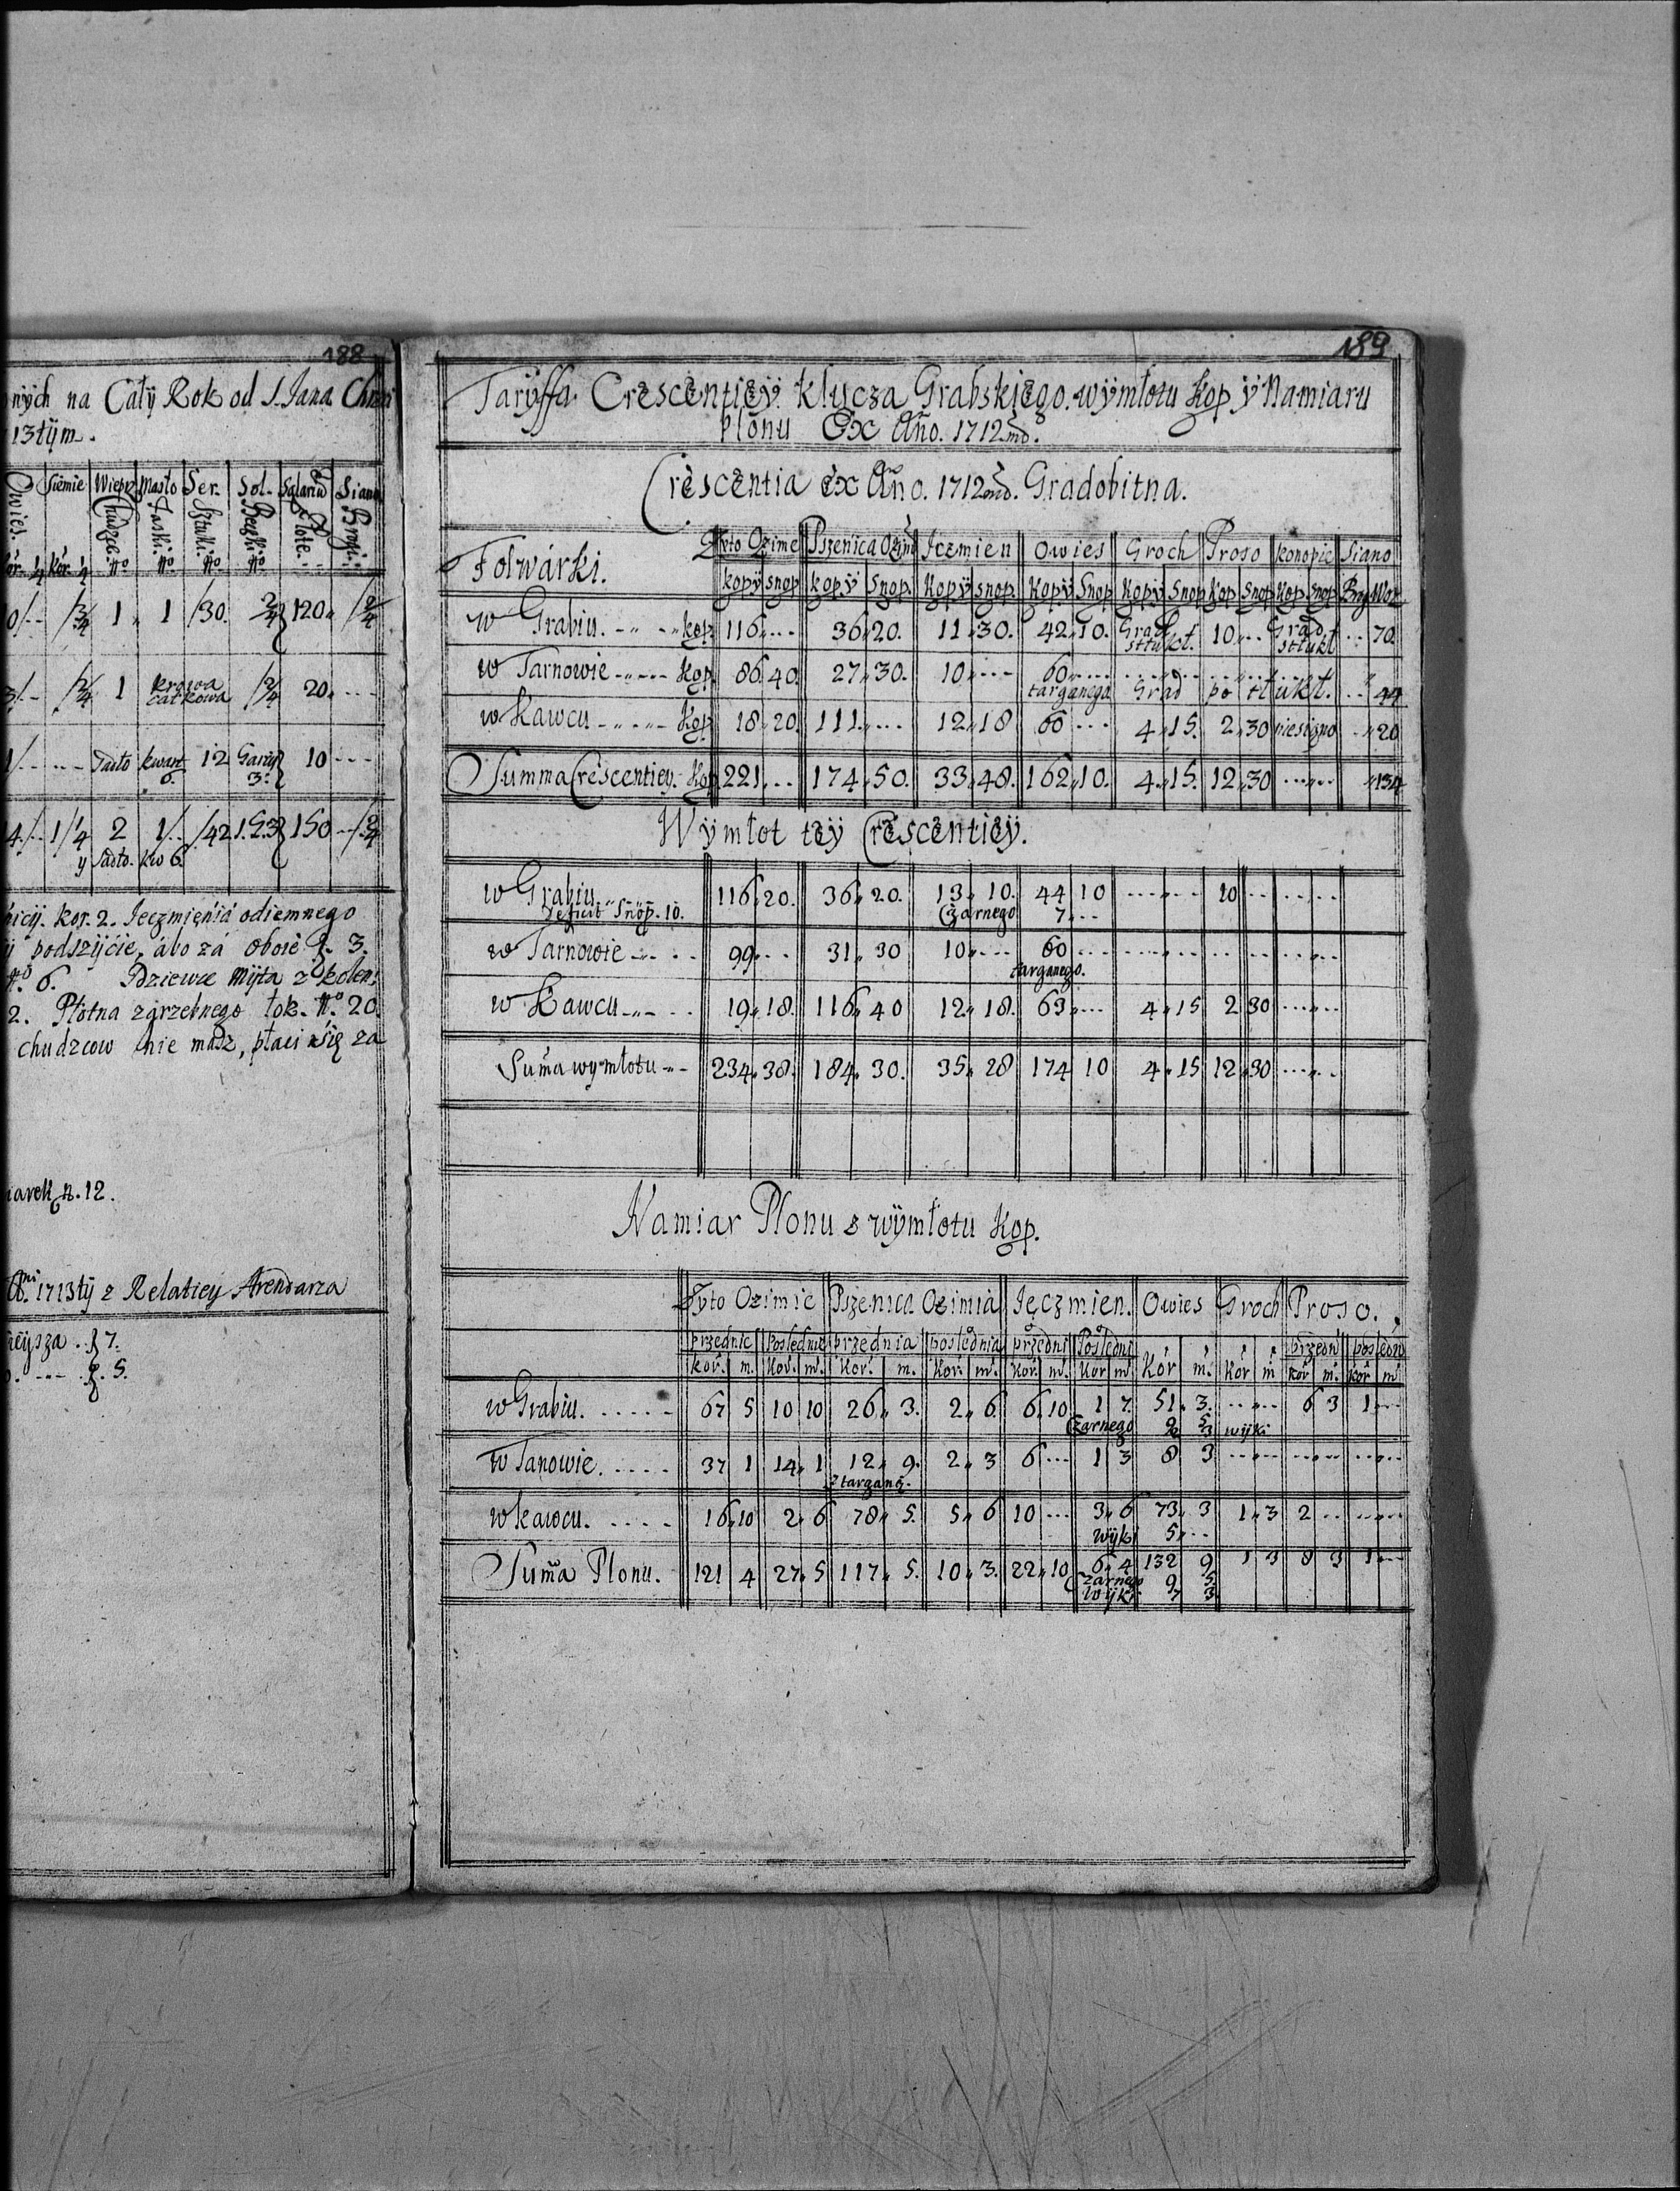 188
nych na Cały Rok od S. Jana Chrzci
13tÿm.
Owies. Siemie Wieprz Chudze. Masło Faski. Ser. Sztuki. Sol. Beczki Salariu Złote. Siano Brogi.
kor. ¼ kor. ¼ No No No No
0/-- /¾ 1 „ 1 /30. 2/4 120„ /2/4
3/-- /2/4 1 krowa całkowa /2/4 20„ ---
1/-- --- Sadło kwart 6. 12 Garcy 3. 10 ---
4/-- 1/¼ 2 1/. /42 1. G.3 150 --/2/4
y Sadło. kw 6
nicÿ. kor. 2. Jęczmięńiá odiemnego
podszÿcie, ábo zá oboie f. 3.
No. 6. Dziewce Mÿta z kolen.
2. Płotna zgrzebnego łok. No. 20.
chudzcow nie masz, płaci się za
iarek n. 12.
1713tÿ z Relatiey Arendarza
ieysza . f 7.
--- f. 5.
189
Tarÿffa Crescentieÿ Klucza Grabskiego. wÿmłotu Kop ÿ Namiaru
Plonu Ex Año. 1712mo.
Crescentia ex Año. 1712mo. Gradobitna.
Folwárki. Zyto Ozime Pszenica Ozim Jczmien Owies Groch Proso Konopie Siano
kopÿ snop kopÿ Snop. Kopÿ snop. Kopÿ Snop Kopÿ Snop Kop Snop Kop Snop Brog Woz
w Grabiu. - „ - „ kop 116„--- 36„20. 11„30. 42„10. Grad sttukł. 10„-- Grad sttukł -- 70.
w Tarnowie - „ --- Kop 86„40. 27„30. 10„--- 60„--- targanego Grad po tł ukł. -- „44
w Kawcu - „ - „ - Kop 18„20. 111„--- 12„18 60 --- 4„15. 2„30 niesiano -- „20
Summa Crescentiey. Kop 221„-- 174„50. 33„48. 162„10. 4„15. 12„30 ---„-- „134
Wÿmłot teÿ Crescentieÿ.
w Grabiu 116„20. 36„20. 13„10. 44 10 ---„-- 10 -- --„--
deficit Snop. 10. Czarnego 7„--
w Tarnowie -„- - - 99„-- 31„30 10„--- 60 --- ---„-- --„-- --„--
targanego.
w Kawcu -„- - - 19„18. 116„40 12„18. 63„--- 4„15 2 30 ---„--
Suma wymłotu -„- 234„38. 184„30. 35„28 174 10 4„15 12„30 ---„--
Namiar Plonu z wÿmłotu Kop.
Zyto Ozimie Pszenica Ozimia Jęczmien. Owies Groch Proso.
przednie Poslednie przednia poslednia przedni Posledni przedn posledn
kor. m. Kor. m. Kor. m. Kor. m. Kor. m. Kor m Kor m. Kor m kor m. kor m
w Grabiu. ----- 67 5 10 10 26„3. 2„6 6„10 1 7. 51„3. --„-- 6 3 1„--
Czarnego 9 5 wÿki
w Tanowie. ---- 37 1 14„1 12„9. 2„3 6 --- 1 3 8 3 --„-- --„-- --„--
z targaneg.
w kawcu. ---- 16„10 2„6 78„5. 5„6 10 --- 3„6 73„3 1„3 2 -- --„--
wÿki 5„--
Suma Plonu. 121 4 27„5 117„5. 10„3. 22„10 6„4 132 9 1 3 8 3 1„--
Czarnego 9 5
Wÿki 7 3